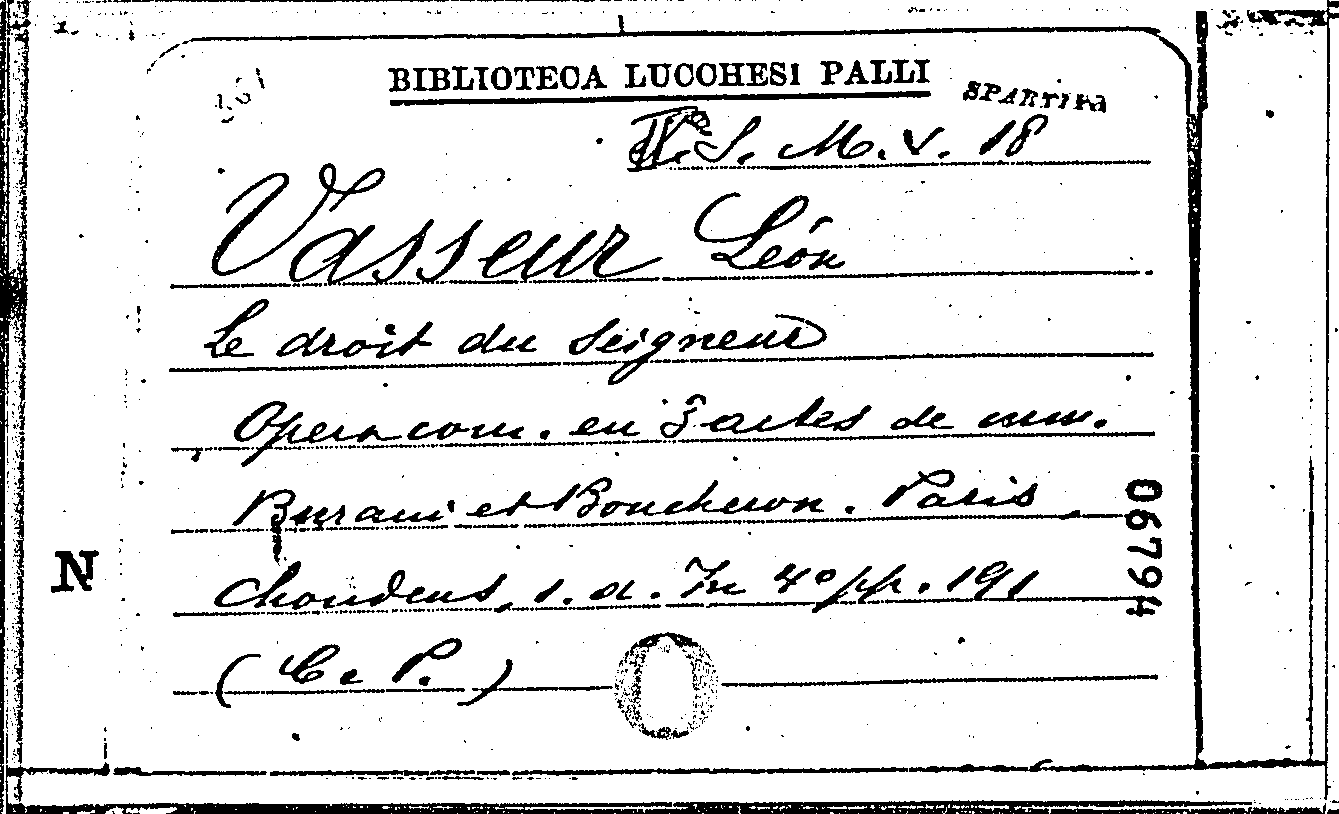 BIBLIOTECA LUCCHESI PALLI
SPARTITA
S. M. V. 18
Vasseur Léon
Le droit du Seigneur
Opera com. en 3 actes de mm.
Burani et Boucheron. Paris,
Choudens, s. d. In 4° pp. 191
(C e P.)
N
06794